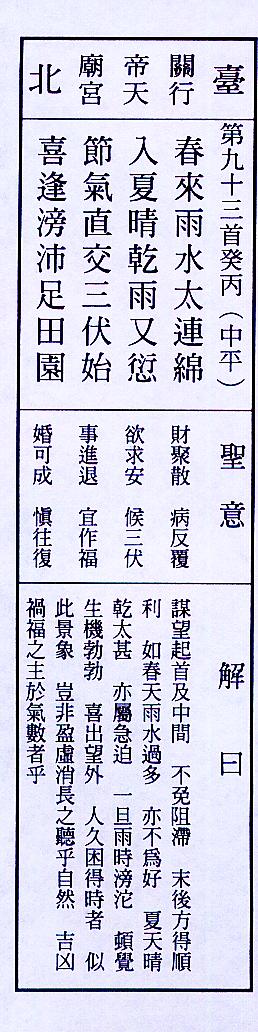 臺
關行
帝天
廟宮
北
第九十三首癸丙（中平）
春來雨水太連綿
入夏晴乾雨又愆
節氣直交三伏始
喜逢滂沛足田園
聖意
財聚散　病反覆
欲求安　候三伏
事進退　宜作福
婚可成　慎往復
解曰
謀望起首及中間　不免阻滯　末後方得順
利　如春天雨水過多　亦不爲好　夏天晴
乾太甚　亦屬急迫　一旦雨時滂沱　頓覺
生機勃勃　喜出望外　人久困得時者　似
此景象　豈非盈虛消長之聽乎自然　吉凶
禍福之主於氣數者乎